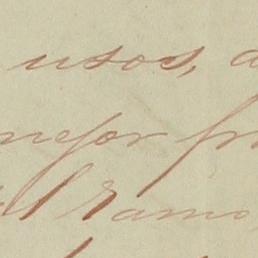 usos, a
mejor fr
el ramo